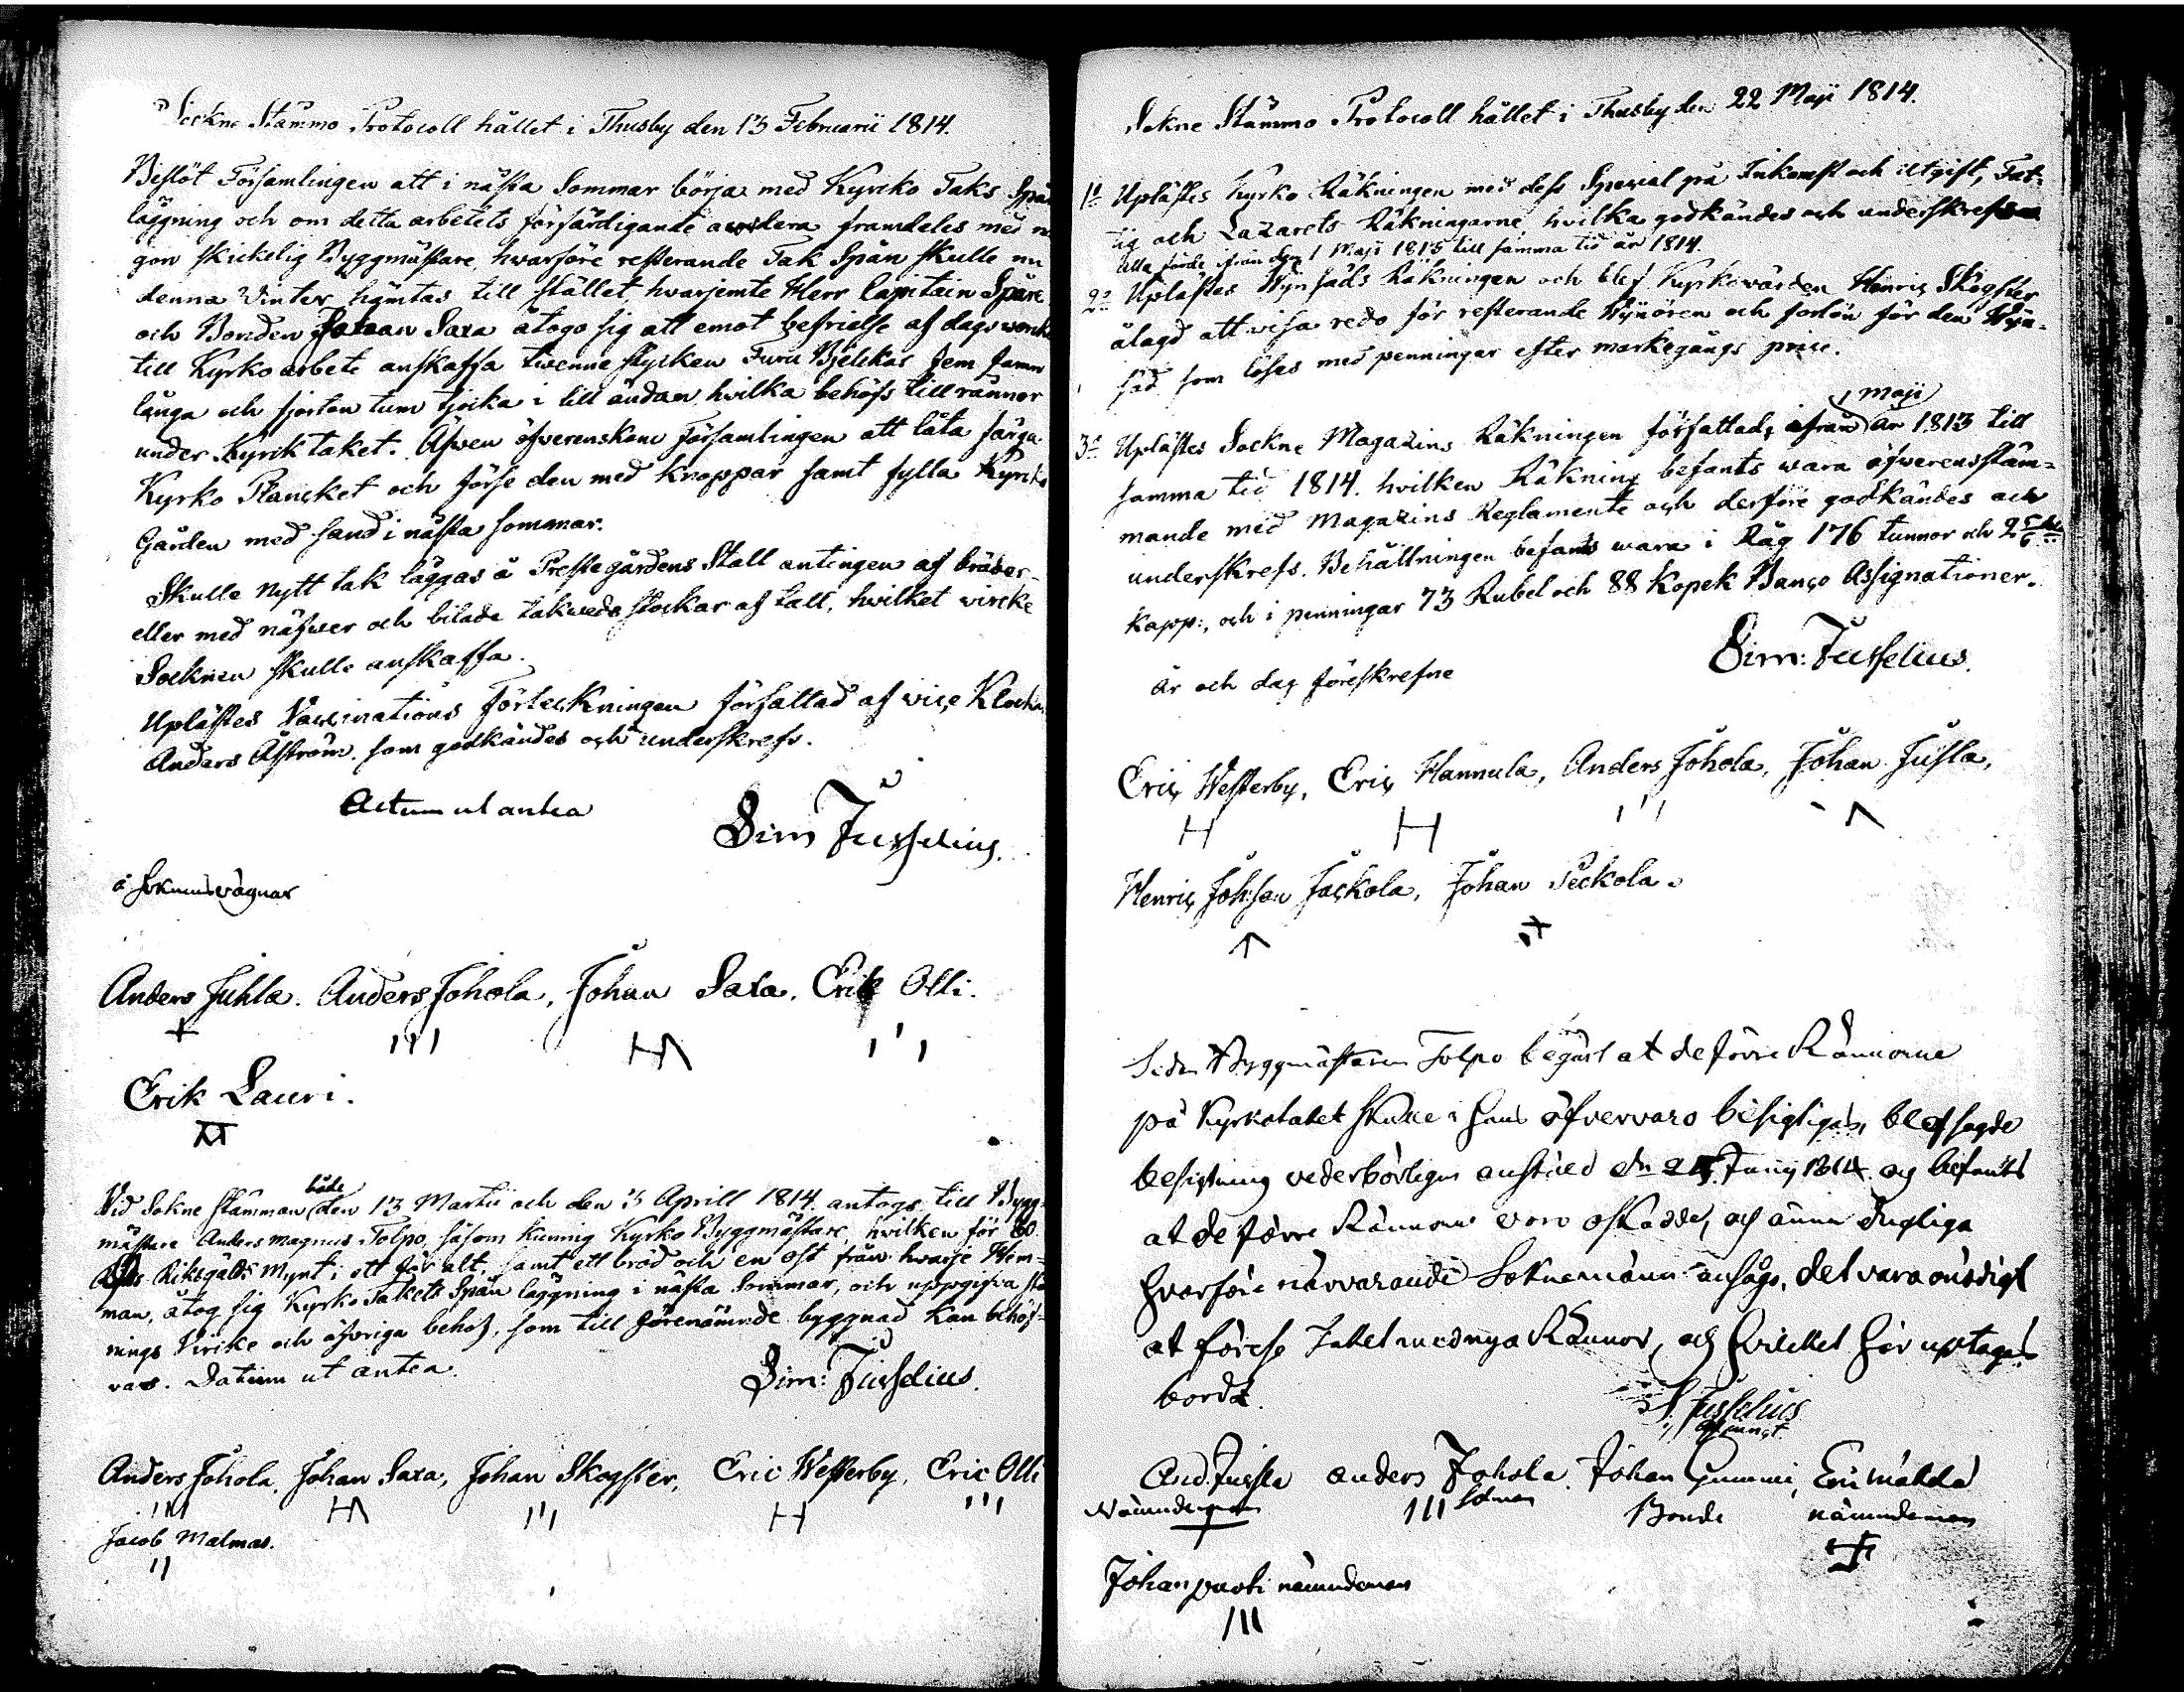 Sockne Stämmo Protocoll hållet i Thusby den 13 Februarii 1814.
Beslöt Församlingen att i nästa Sommar börja med Kyrcko Taks Spån
läggning och om detta arbetets förfärdigande ackordera framdeles med nå
gon skickelig Byggmästare, hvarföre resterande Tak Spån skulle nu
denna Vinter hämtas till stället, hvarjemte Herr Capitain Spåre
och Bonden Johan Saxa åtogo sig att emot befrielse af dagswerke
till Kyrko arbete anskaffa twenne stycken Furu Bjelckar fem famn
långa och fjorton tum tjocka i lill ändan hvilka behöfs till rännor
under Kyrck taket. Äfwen öfwerenskom Församlingen att låta färga
Kyrko Plancket och förse den med knoppar samt fylla Kyrcko
Gården med sand i nästa sommar.
Skulle nytt tak läggas å Prestegårdens Stall antingen af bräder
eller med näfwer och bilade takweds stockar af tall, hvilket wircke
Socknen skulle anskaffa.
Uplästes Vaccinations förteckningen författad af vice Klockar
Anders Åström som godkändes och underskrefs.
Actum ut antea
Sim Jusselius.
å Soknens vägnar
Anders Juhla. Anders Johola, Johan Saxa. Erik Olli.
Erik Lauri.
både
Vid Sokne stämman den 13 Martii och den 3 Aprill 1814 antogs till Bygg-
mästare Anders Magnus Tolpo, såsom kunnig Kyrko Byggmästare, hvilken för 80
Riksgälds Mynt i ett för alt, samt ett bröd och en ost från hvarje Hem-
man, åtog sig Kyrko Takets Spån läggning i nästa Sommar, och uppgifva
nings Virke och öfvriga behof, som till förenämnde byggnad kan behöf-
vas. Datum ut antea.
Sim: Jusselius.
Anders Johola, Johan Saxa, Johan Skogster, Eric Westerby, Eric Olli
Jacob Malmas.
Sokne Stämmo Protocoll hållet i Thusby den 22 Maji 1814.
1o Uplästes Kyrko Räkningen med dess Special på Inkomst och utgift, Fat-
tig och Lazarets Räkningarne, hvilka godkändes och underskrefs
alla förde ifrån den 1 Maji 1813 till samma tid år 1814.
2o Uplästes Wynsäds Räkningen och blef Kyrkovärden Henric Skogster
ålagd att visa redo för resterande Wynören och forlön för den Wyn-
säd som löses med penningar efter markegångs price.
1 Maji
3o Uplästes Sockne Magazins Räkningen författad, ifrån år 1813 till
samma tid 1814. hvilken Räkning befants wara öfwerensstäm-
mande med Magazins Reglemente och derföre godkändes och
underskrefs. Behållningen befants wara i Råg 176 tunnor och 2 5/6
Kapp:, och i penningar 73 Rubel och 88 Kopek Banco Assignationer.
År och dag föreskrefne
Sim: Jusselius.
Eric Westerby, Eric Hannula, Anders Johola, Johan Jusla,
Henric Joh:son Jäckola, Johan Peckola.
Sedan Byggmästaren Tolpo begärt at de förre Rännorne
på Kyrkotaket skulle i hans öfvervaro besigtigas, blef sagde
besigtning vederbörligen anstäld den 24 Junij 1814 og befants
at de förre Rännorne voro oskadde, och ännu dugliga
hvarföre närvarande Soknemänn ansågo, det vara onödigt
at förese Taket med nya Rännor, och hvilcket här uptagas
borde.
S. Jusselius
And. Jussla anders Johola. Johan Gummi, Eric mattila
Nämndeman Bonde nämndeman
Johan pauti nämndeman